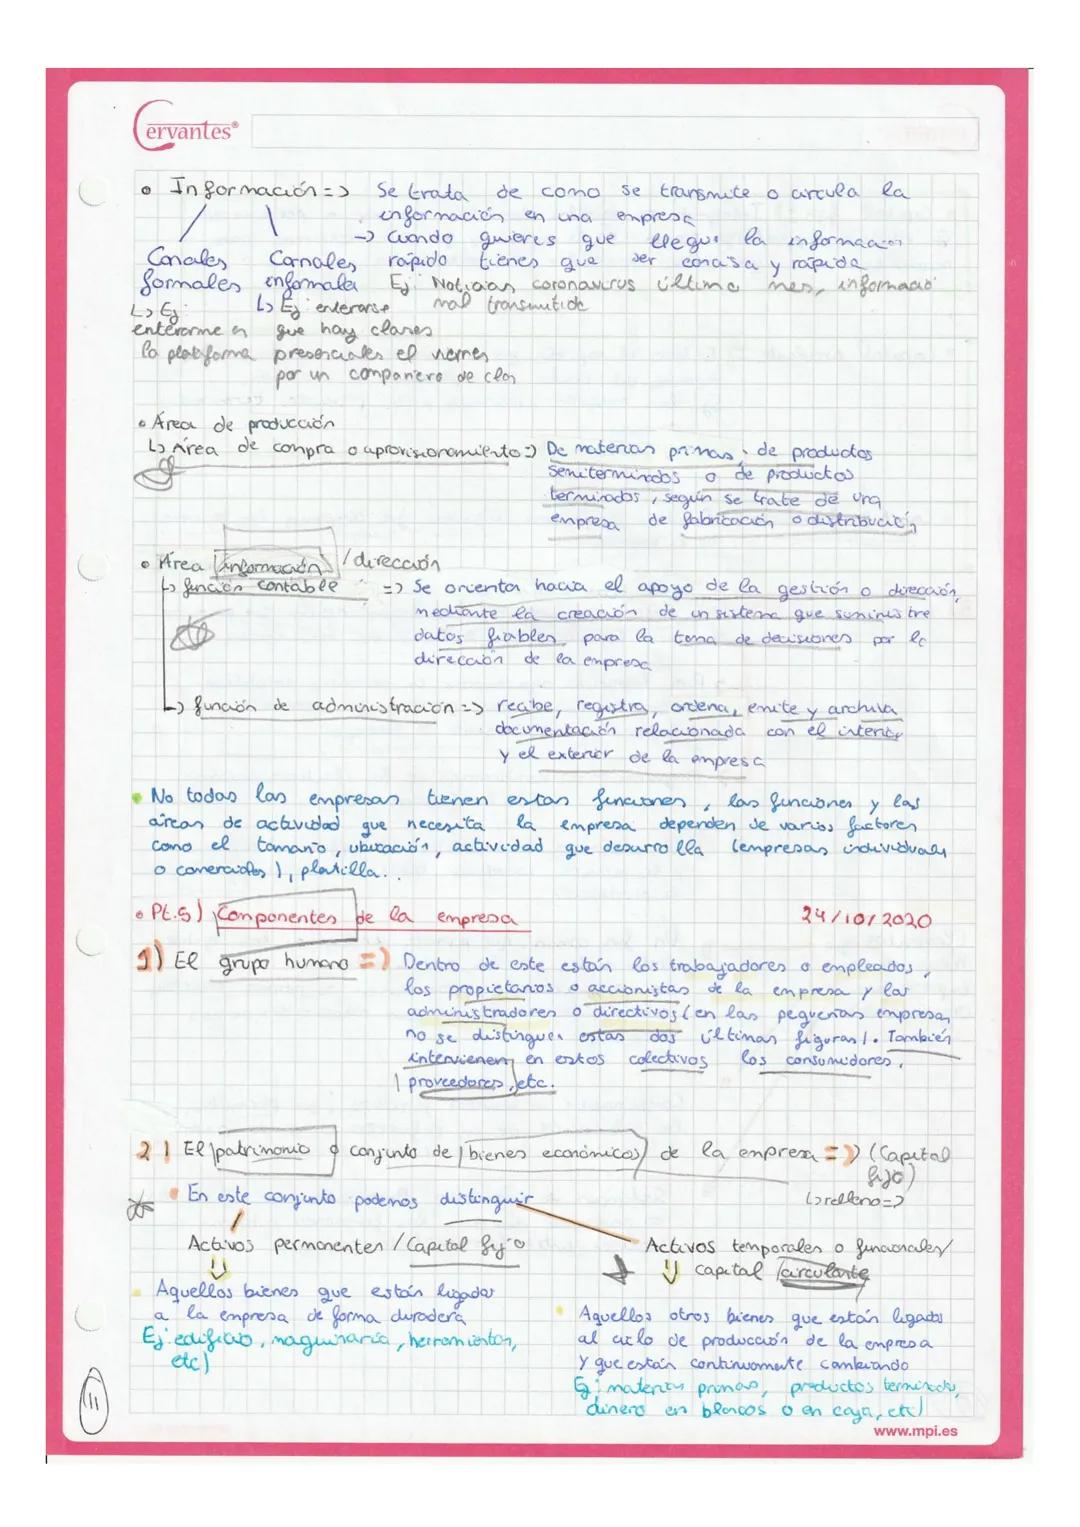 Cervantes®
• Información => Se trata de como se transmite o circula la
información en una empresa
-> Cuando quieres que llegue la información
rápido tienes que ser concisa y rápida
Ej: Noticias coronavirus último mes, informació
mal transmitida
Canales formales
↳ Ej:
enterarme en
la plataforma
Canales informales
↳ Ej: enterarse
que hay clases
presenciales el viernes
por un compañero de clas
• Área de producción
↳ Área de compra o aprovisionamiento => De materias primas, de productos
semiterminados o de productos
terminados, según se trate de una
empresa de fabricación o distribución
• Área información / dirección
↳ función contable => Se orienta hacia el apoyo de la gestión o dirección,
mediante la creación de un sistema que suministre
datos fiables para la toma de decisiones por la
dirección de la empresa
↳ función de administración => recibe, registra, ordena, emite y archiva
documentación relacionada con el interior
y el exterior de la empresa
• No todas las empresas tienen estas funciones, las funciones y las
áreas de actividad que necesita la empresa dependen de varios factores
como el tamaño, ubicación, actividad que desarrolla (empresas individuales
o comerciales), plantilla..
• Pt.5) Componentes de la empresa 24/10/2020
1) El grupo humano => Dentro de este están los trabajadores o empleados,
los propietarios o accionistas de la empresa y los
administradores o directivos (en las pequeñas empresas,
no se distinguen estas dos últimas figuras). También
intervienen en estos colectivos los consumidores,
proveedores, etc.
2) El patrimonio o conjunto de bienes económicos de la empresa => (Capital
fijo)
↳ relleno =>
• En este conjunto podemos distinguir
Activos permanentes / Capital fijo
Aquellos bienes que están ligados
a la empresa de forma duradera
Ej: edificio, maquinaria, herramientas,
etc)
Activos temporales o funcionales/
capital circulante
Aquellos otros bienes que están ligados
al ciclo de producción de la empresa
y que están continuamente cambiando
Ej: materias primas, productos terminados,
dinero en bancos o en caja, etc)
11
www.mpi.es